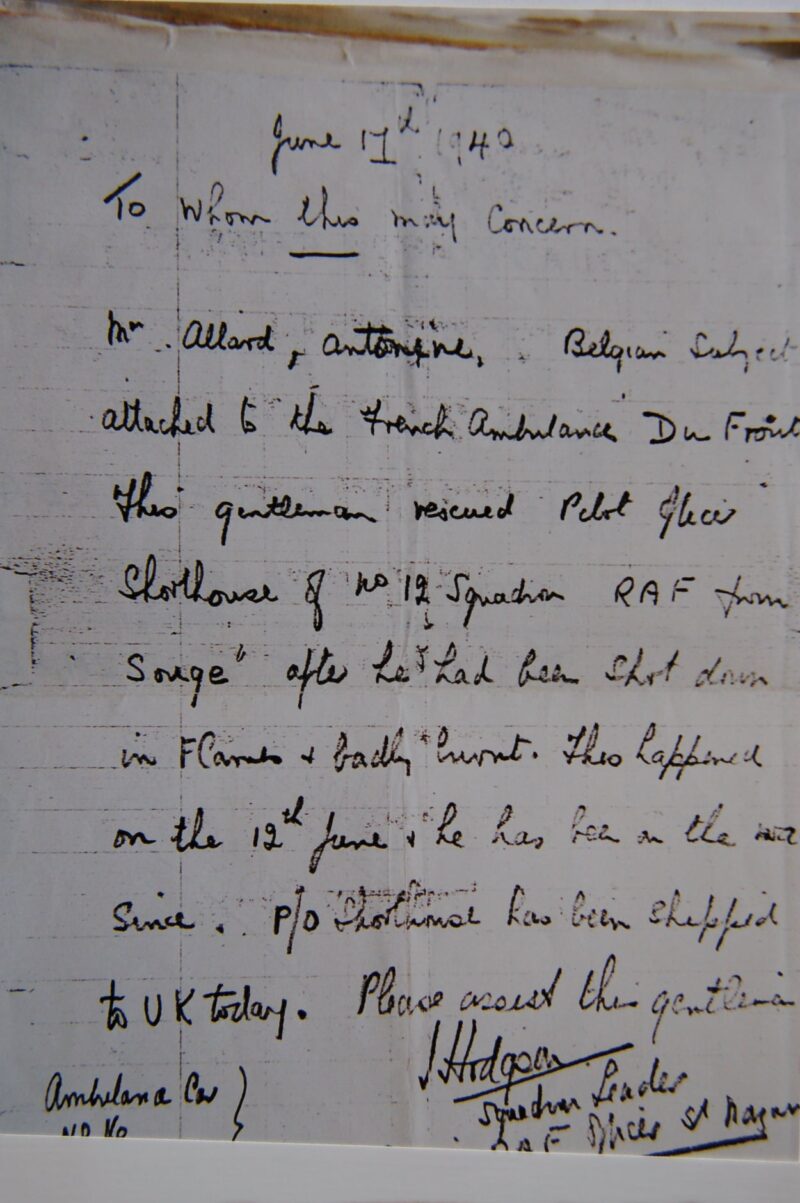 June 17th 1940
To Whom this may Concern.
Mr. Allard, Antoine, Belgian Subject
attached to the French Ambulance Du Front
This gentleman rescued Pilot Officer
Shorthouse of No 12 Squadron RAF from
Souge" after he had been shot down
in Flames & badly burnt. This happened
on the 12th June & he has been on the
Since. P/O Shorthouse has been shipped
to UK today. Please assist this gentleman
J Hodgson
Squadron Leader
RAF Officer St Nazaire
Ambulance Car